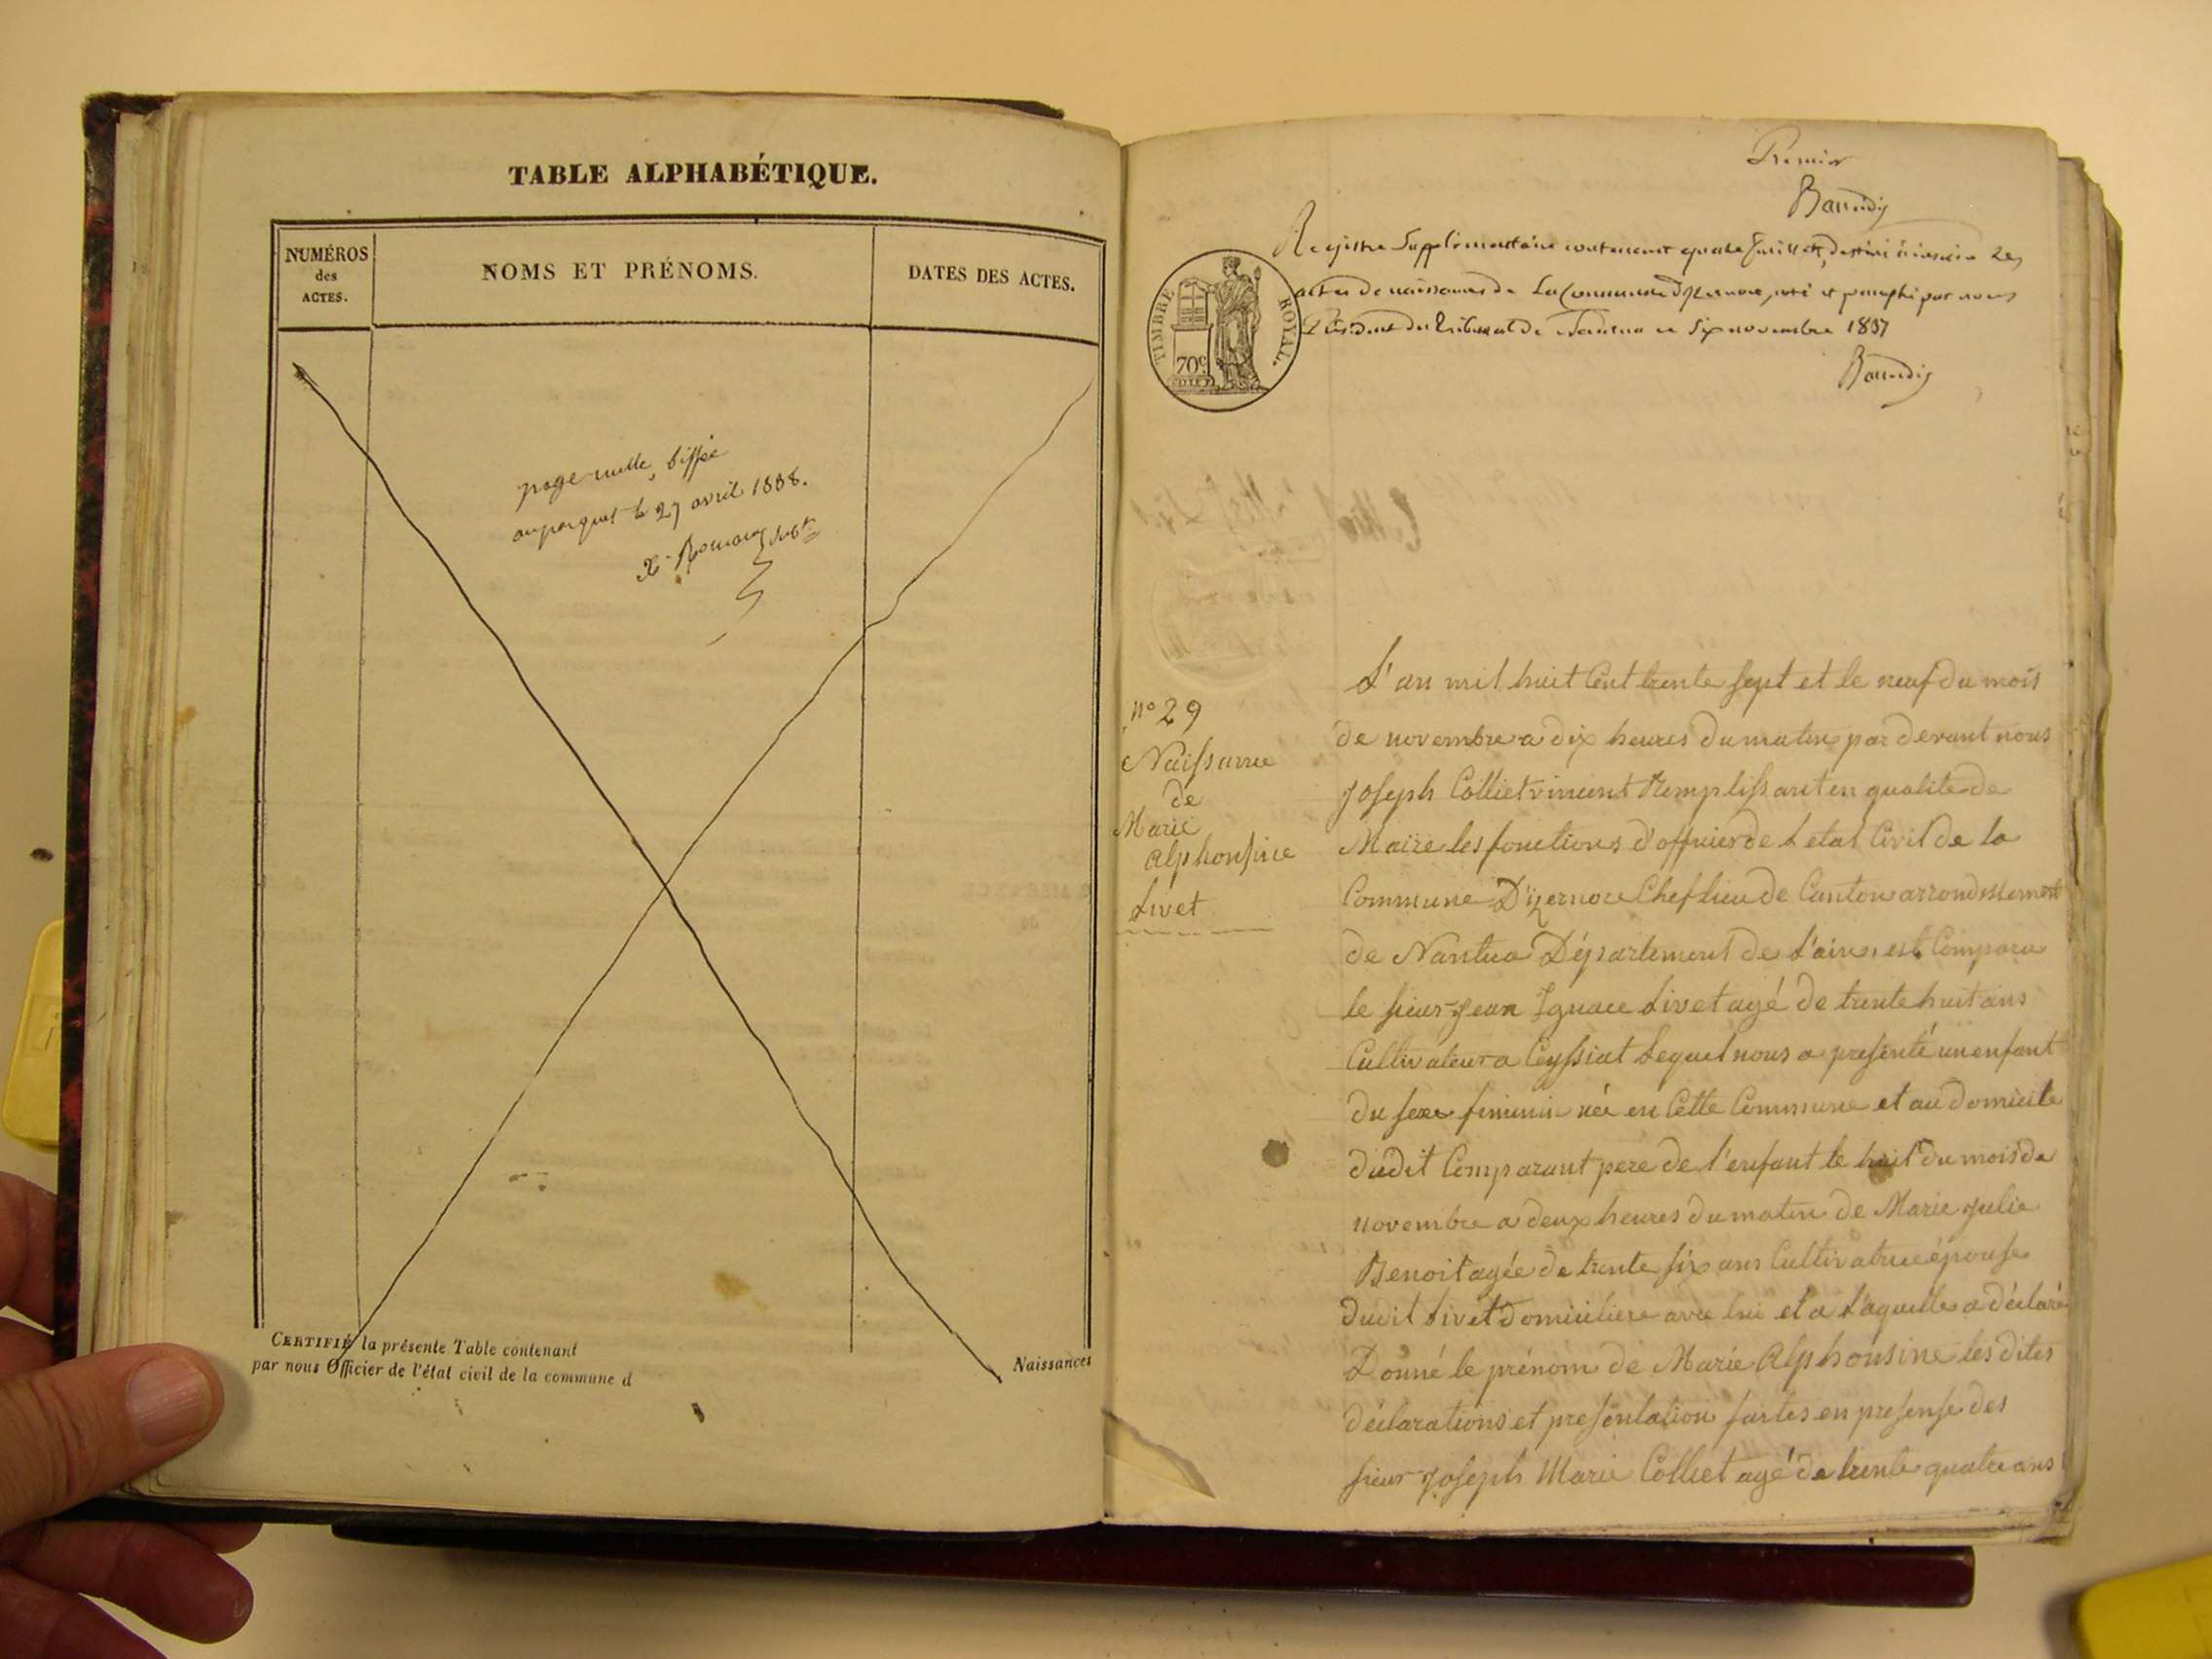 TABLE ALPHABÉTIQUE.
NUMÉROS
des
ACTES.
NOMS ET PRÉNOMS.
DATES DES ACTES.
page nulle, biffée
au parquet le 27 avril 1838.
subt
CERTIFIÉ la présente Table contenant
Naissances
par nous Officier de l'état civil de la commune d
Premier
Baundiz
Registre Supplémentaire contenant quatre feuillets, destiné à inscrire les
actes de naissances de la Commune d'Izernore, coté et paraphé par nous
Président du tribunal de Nantua ce six novembre 1837
Baundiz
TIMBRE ROYAL.
70c
n° 29
Naissance
de
Marie
Alphonsine
Livet
L'an mil huit Cent trente sept et le neuf du mois
de novembre a dix heures du matin par devant nous
Joseph Colliet vincent Remplissant en qualite de
Maire les fonctions d'officier de L'etat Civil de la
Commune D'izernore Chef lieu de Canton arrondissement
de Nantua Département de L'ain, est Comparu
le sieur Jean Ignace Livet agé de trente huit ans
Cultivateur a Ceyssiat Lequel nous a presenté un enfant
du sexe feminin née en Cette Commune et au domicile
dudit Comparant pere de l'enfant le huit du mois de
novembre a deux heures du matin de Marie Julie
Benoit agée de trente six ans Cultivatrice épouse
dudit Livet domiciliere avec lui et a L'aquelle a déclaré
Donné le prénom de Marie Alphonsine les dites
déclarations et presentation faites en presense des
sieur Joseph Marie Colliet agé de trente quatre ans